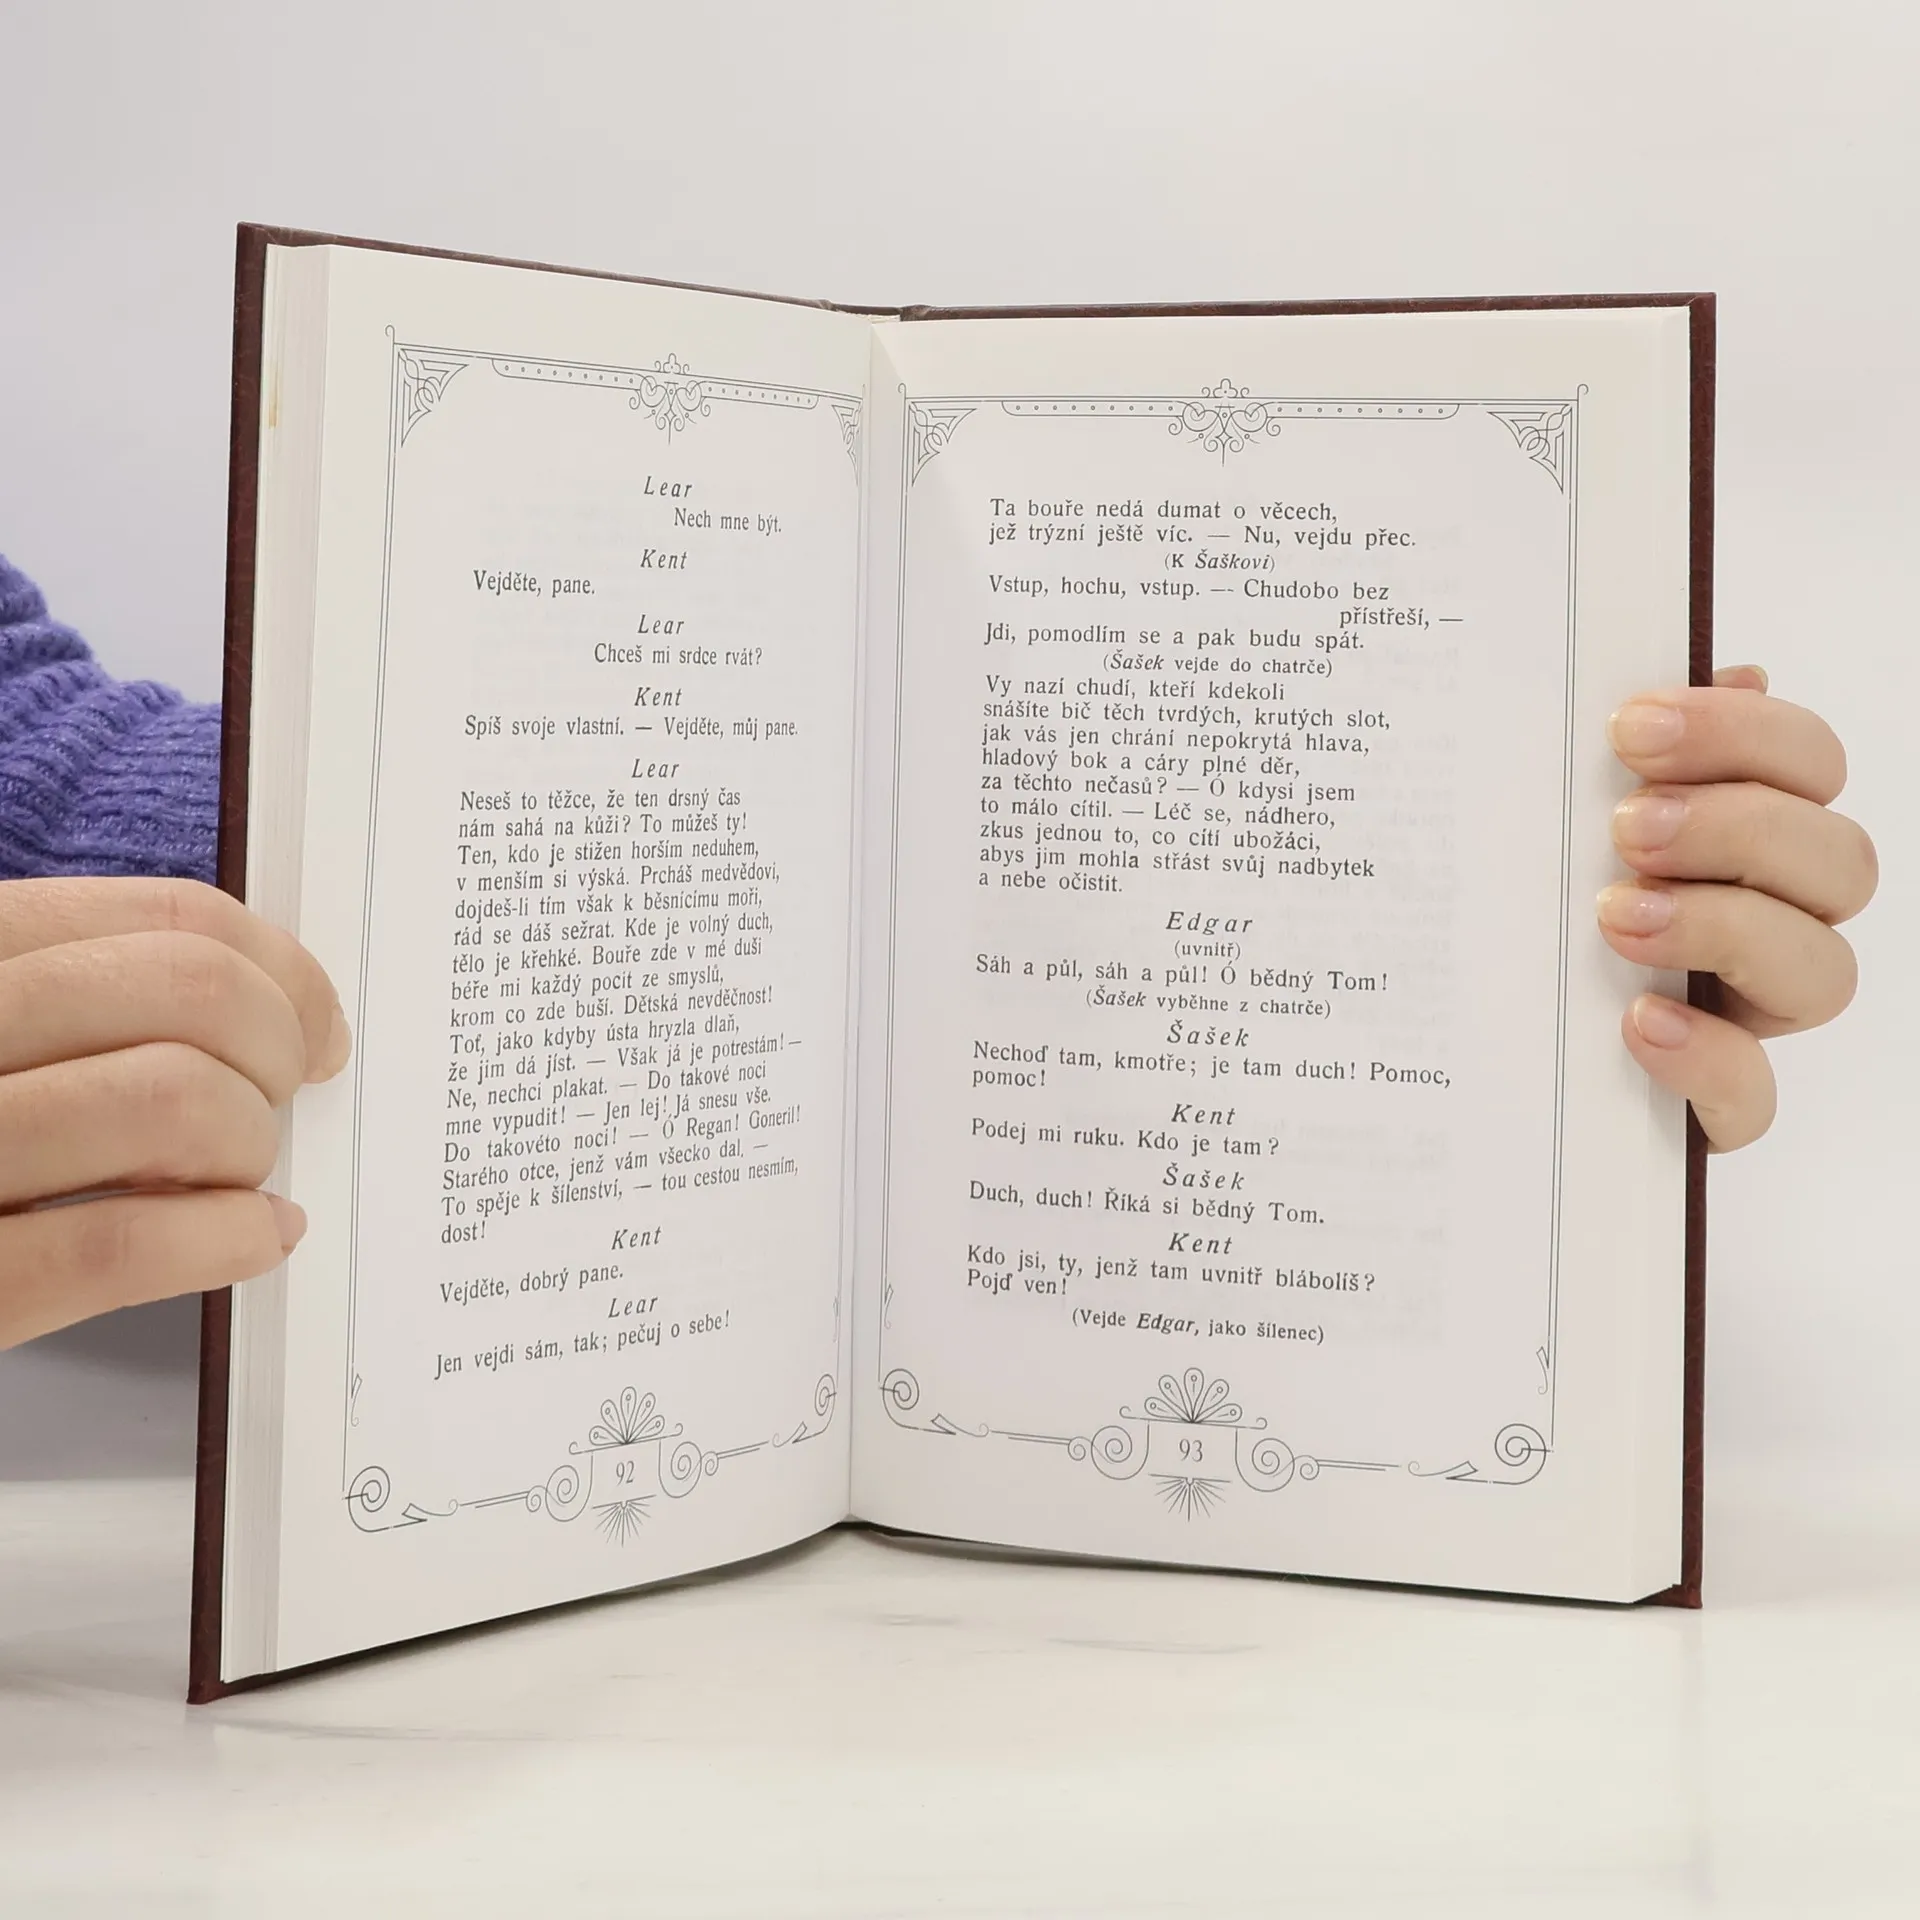 Lear
Nech mne být.
Kent
Vejděte, pane.
Lear
Chceš mi srdce rvát?
Kent
Spíš svoje vlastní. — Vejděte, můj pane.
Lear
Neseš to těžce, že ten drsný čas
nám sahá na kůži? To můžeš ty!
Ten, kdo je stižen horším neduhem,
v menším si výská. Prcháš medvědovi,
dojdeš-li tím však k běsnícímu moři,
rád se dáš sežrat. Kde je volný duch,
tělo je křehké. Bouře zde v mé duši
béře mi každý pocit ze smyslů,
krom co zde buší. Dětská nevděčnost!
Toť, jako kdyby ústa hryzla dlaň,
že jim dá jíst. — Však já je potrestám! —
Ne, nechci plakat. — Do takové noci
mne vypudit! — Jen lej! Já snesu vše.
Do takovéto noci! — Ó Regan! Goneril!
Starého otce, jenž vám všecko dal, —
To spěje k šílenství, — tou cestou nesmím,
dost!
Kent
Vejděte, dobrý pane.
Lear
Jen vejdi sám, tak; pečuj o sebe!
92
Ta bouře nedá dumat o věcech,
jež trýzní ještě víc. — Nu, vejdu přec.
(K Šaškovi)
Vstup, hochu, vstup. — Chudobo bez
přístřeší, —
Jdi, pomodlím se a pak budu spát.
(Šašek vejde do chatrče)
Vy nazí chudí, kteří kdekoli
snášíte bič těch tvrdých, krutých slot,
jak vás jen chrání nepokrytá hlava,
hladový bok a cáry plné děr,
za těchto nečasů? — Ó kdysi jsem
to málo cítil. — Léč se, nádhero,
zkus jednou to, co cítí ubožáci,
abys jim mohla střást svůj nadbytek
a nebe očistit.
Edgar
(uvnitř)
Sáh a půl, sáh a půl! Ó bědný Tom!
(Šašek vyběhne z chatrče)
Šašek
Nechoď tam, kmotře; je tam duch! Pomoc,
pomoc!
Kent
Podej mi ruku. Kdo je tam?
Šašek
Duch, duch! Říká si bědný Tom.
Kent
Kdo jsi, ty, jenž tam uvnitř blábolíš?
Pojď ven!
(Vejde Edgar, jako šílenec)
93